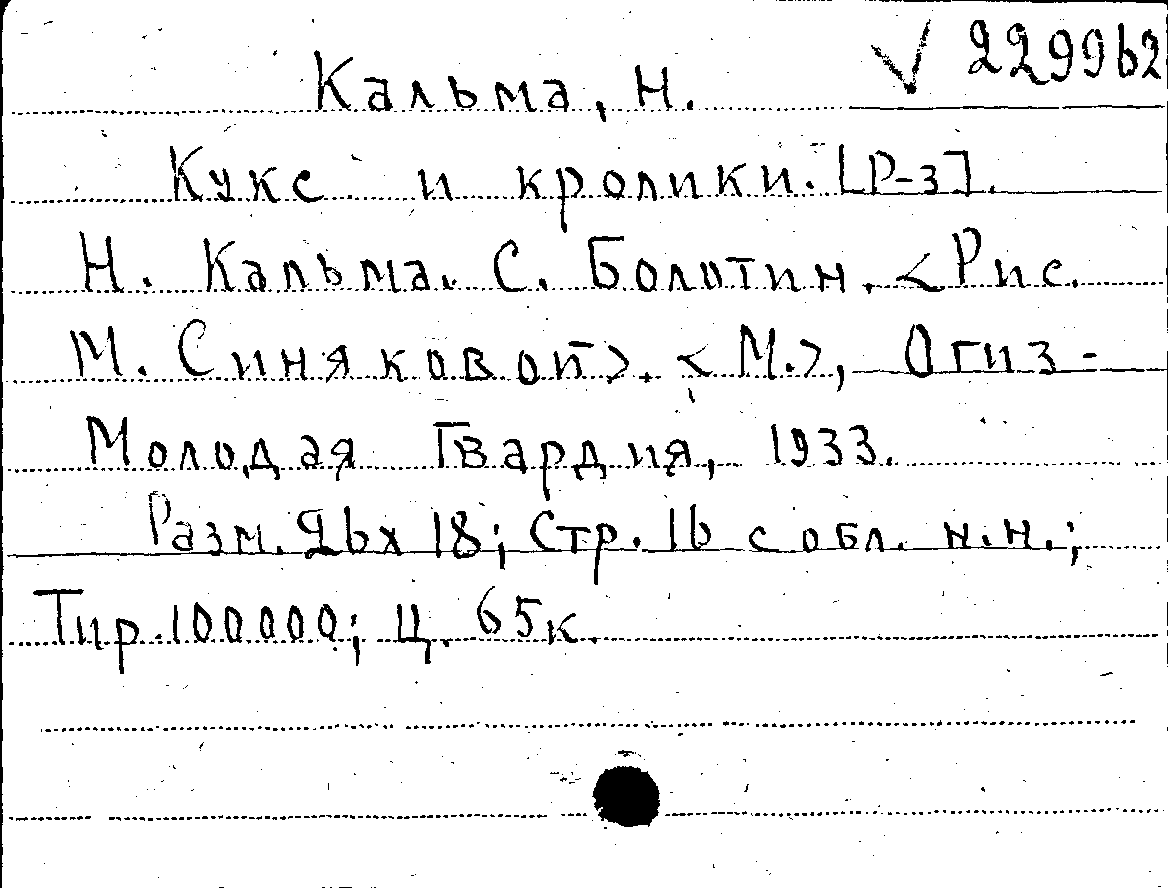 √ 229962
Кальма, Н.
Кукс и кролики. [Р-з].
Н. Кальма. С. Болотин. <Рис.
М. Синяковой>. <М.>, Огиз-
Молодая Гвардия, 1933.
Разм. 26х18; Стр. 16 с обл. н.н.;
Тир. 100000; Ц. 65к.